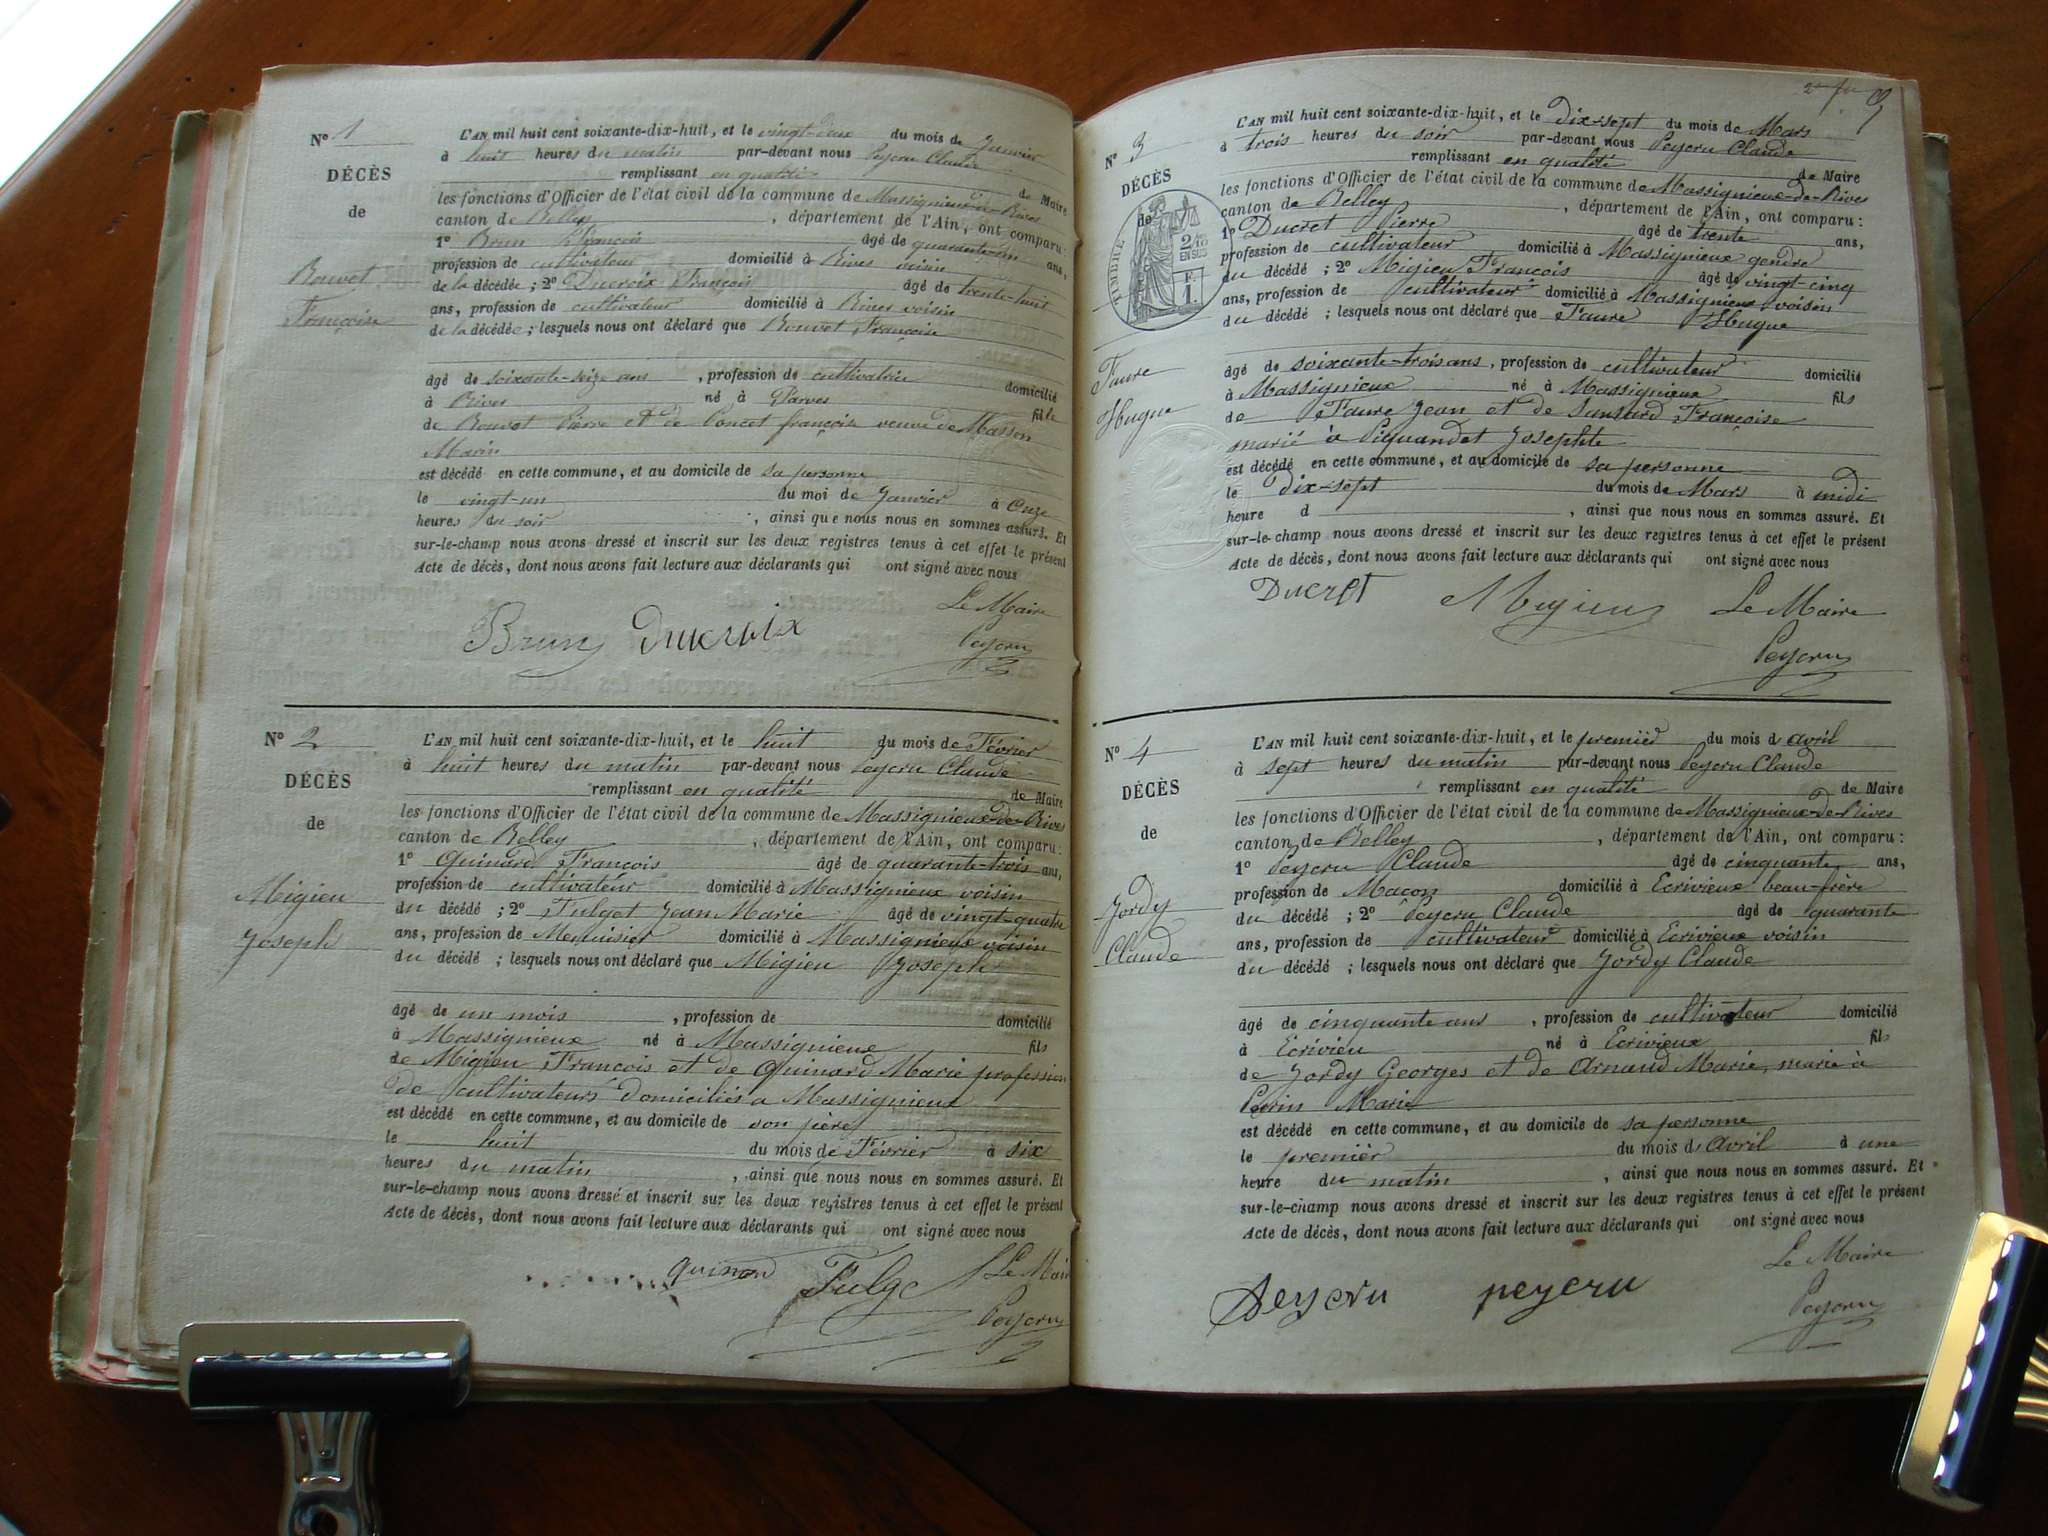 N° 1
DÉCÈS
de
Bouvet
Françoise
L'AN mil huit cent soixante-dix-huit, et le vingt-deux du mois de Janvier
à huit heures du matin par-devant nous Peycru Claude
remplissant en qualité de Maire
les fonctions d'Officier de l'état civil de la commune de Massignieux-de-Rives
canton de Belley, département de l'Ain, ont comparu :
1° Brun François âgé de quarante-un ans,
profession de cultivateur domicilié à Rives voisin
de la décédée ; 2° Ducroix François âgé de trente-huit
ans, profession de cultivateur domicilié à Rives voisin
de la décédée ; lesquels nous ont déclaré que Bouvet Françoise
âgé de soixante-seize ans, profession de cultivatrice domicilié
à Rives né à Parves fille
de Bouvet Pierre et de Poncet françoise veuve de Masson
Marin
est décédé en cette commune, et au domicile de sa personne
le vingt-un du moi de Janvier à Onze
heures du soir, ainsi que nous nous en sommes assuré. Et
sur-le-champ nous avons dressé et inscrit sur les deux registres tenus à cet effet le présent
Acte de décès, dont nous avons fait lecture aux déclarants qui ont signé avec nous
Le Maire
Brun Ducroix Peycru
N° 2
DÉCÈS
de
Migieu
Joseph
L'AN mil huit cent soixante-dix-huit, et le huit du mois de Février
à huit heures du matin par-devant nous Peycru Claude
remplissant en qualité de Maire
les fonctions d'Officier de l'état civil de la commune de Massignieux-de-Rives
canton de Belley, département de l'Ain, ont comparu :
1° Quinard François âgé de quarante-trois ans,
profession de cultivateur domicilié à Massignieux voisin
du décédé ; 2° Fulget Jean Marie âgé de vingt-quatre
ans, profession de Menuisier domicilié à Massignieux voisin
du décédé ; lesquels nous ont déclaré que Migieu Joseph
âgé de un mois, profession de domicilié
à Massignieux né à Massignieux fils
de Migieu François et de Quinard Marie profession
de cultivateurs domiciliés a Massignieux
est décédé en cette commune, et au domicile de son père
le huit du mois de Février à six
heures du matin, ainsi que nous nous en sommes assuré. Et
sur-le-champ nous avons dressé et inscrit sur les deux registres tenus à cet effet le présent
Acte de décès, dont nous avons fait lecture aux déclarants qui ont signé avec nous
quinard Fulge Le Mair
Peycru
N° 3
DÉCÈS
de
TIMBRE
2/10
EN SUS
F.
1.
Faure
Hugue
L'AN mil huit cent soixante-dix-huit, et le dix-sept du mois de Mars
à trois heures du soir par-devant nous Peycru Claude
remplissant en qualité de Maire
les fonctions d'Officier de l'état civil de la commune de Massignieux-de-Rives
canton de Belley, département de l'Ain, ont comparu :
1° Ducret Pierre âgé de trente ans,
profession de cultivateur domicilié à Massignieux gendre
du décédé ; 2° Migieu François âgé de vingt cinq
ans, profession de cultivateur domicilié à Massignieux voisin
du décédé ; lesquels nous ont déclaré que Faure Hugue
âgé de soixante-trois ans, profession de cultivateur domicilié
à Massignieux né à Massignieux fils
de Faure Jean et de Françoise
marié à Piquandet Josephte
est décédé en cette commune, et au domicile de sa personne
le dix-sept du mois de Mars à midi
heure d, ainsi que nous nous en sommes assuré. Et
sur-le-champ nous avons dressé et inscrit sur les deux registres tenus à cet effet le présent
Acte de décès, dont nous avons fait lecture aux déclarants qui ont signé avec nous
Ducret Migieu Le Maire
Peycru
N° 4
DÉCÈS
de
Jordy
Claude
L'AN mil huit cent soixante-dix-huit, et le premier du mois d avril
à sept heures du matin par-devant nous Peycru Claude
remplissant en qualité de Maire
les fonctions d'Officier de l'état civil de la commune de Massignieux-de-Rives
canton de Belley, département de l'Ain, ont comparu :
1° Peycru Claude âgé de cinquante ans,
profession de Maçon domicilié à Ecrivieux beau-frère
du décédé ; 2° Peycru Claude âgé de quarante
ans, profession de cultivateur domicilié à Ecrivieux voisin
du décédé ; lesquels nous ont déclaré que Jordy Claude
âgé de cinquante ans, profession de cultivateur domicilié
à Ecrivieu né à Ecrivieux fils
de Jordy Georges et de Arnaud Marie, marié à
Perrin Marie
est décédé en cette commune, et au domicile de sa personne
le premier du mois d avril à une
heure du matin, ainsi que nous nous en sommes assuré. Et
sur-le-champ nous avons dressé et inscrit sur les deux registres tenus à cet effet le présent
Acte de décès, dont nous avons fait lecture aux déclarants qui ont signé avec nous
Le Maire
Peycru peycru Peycru